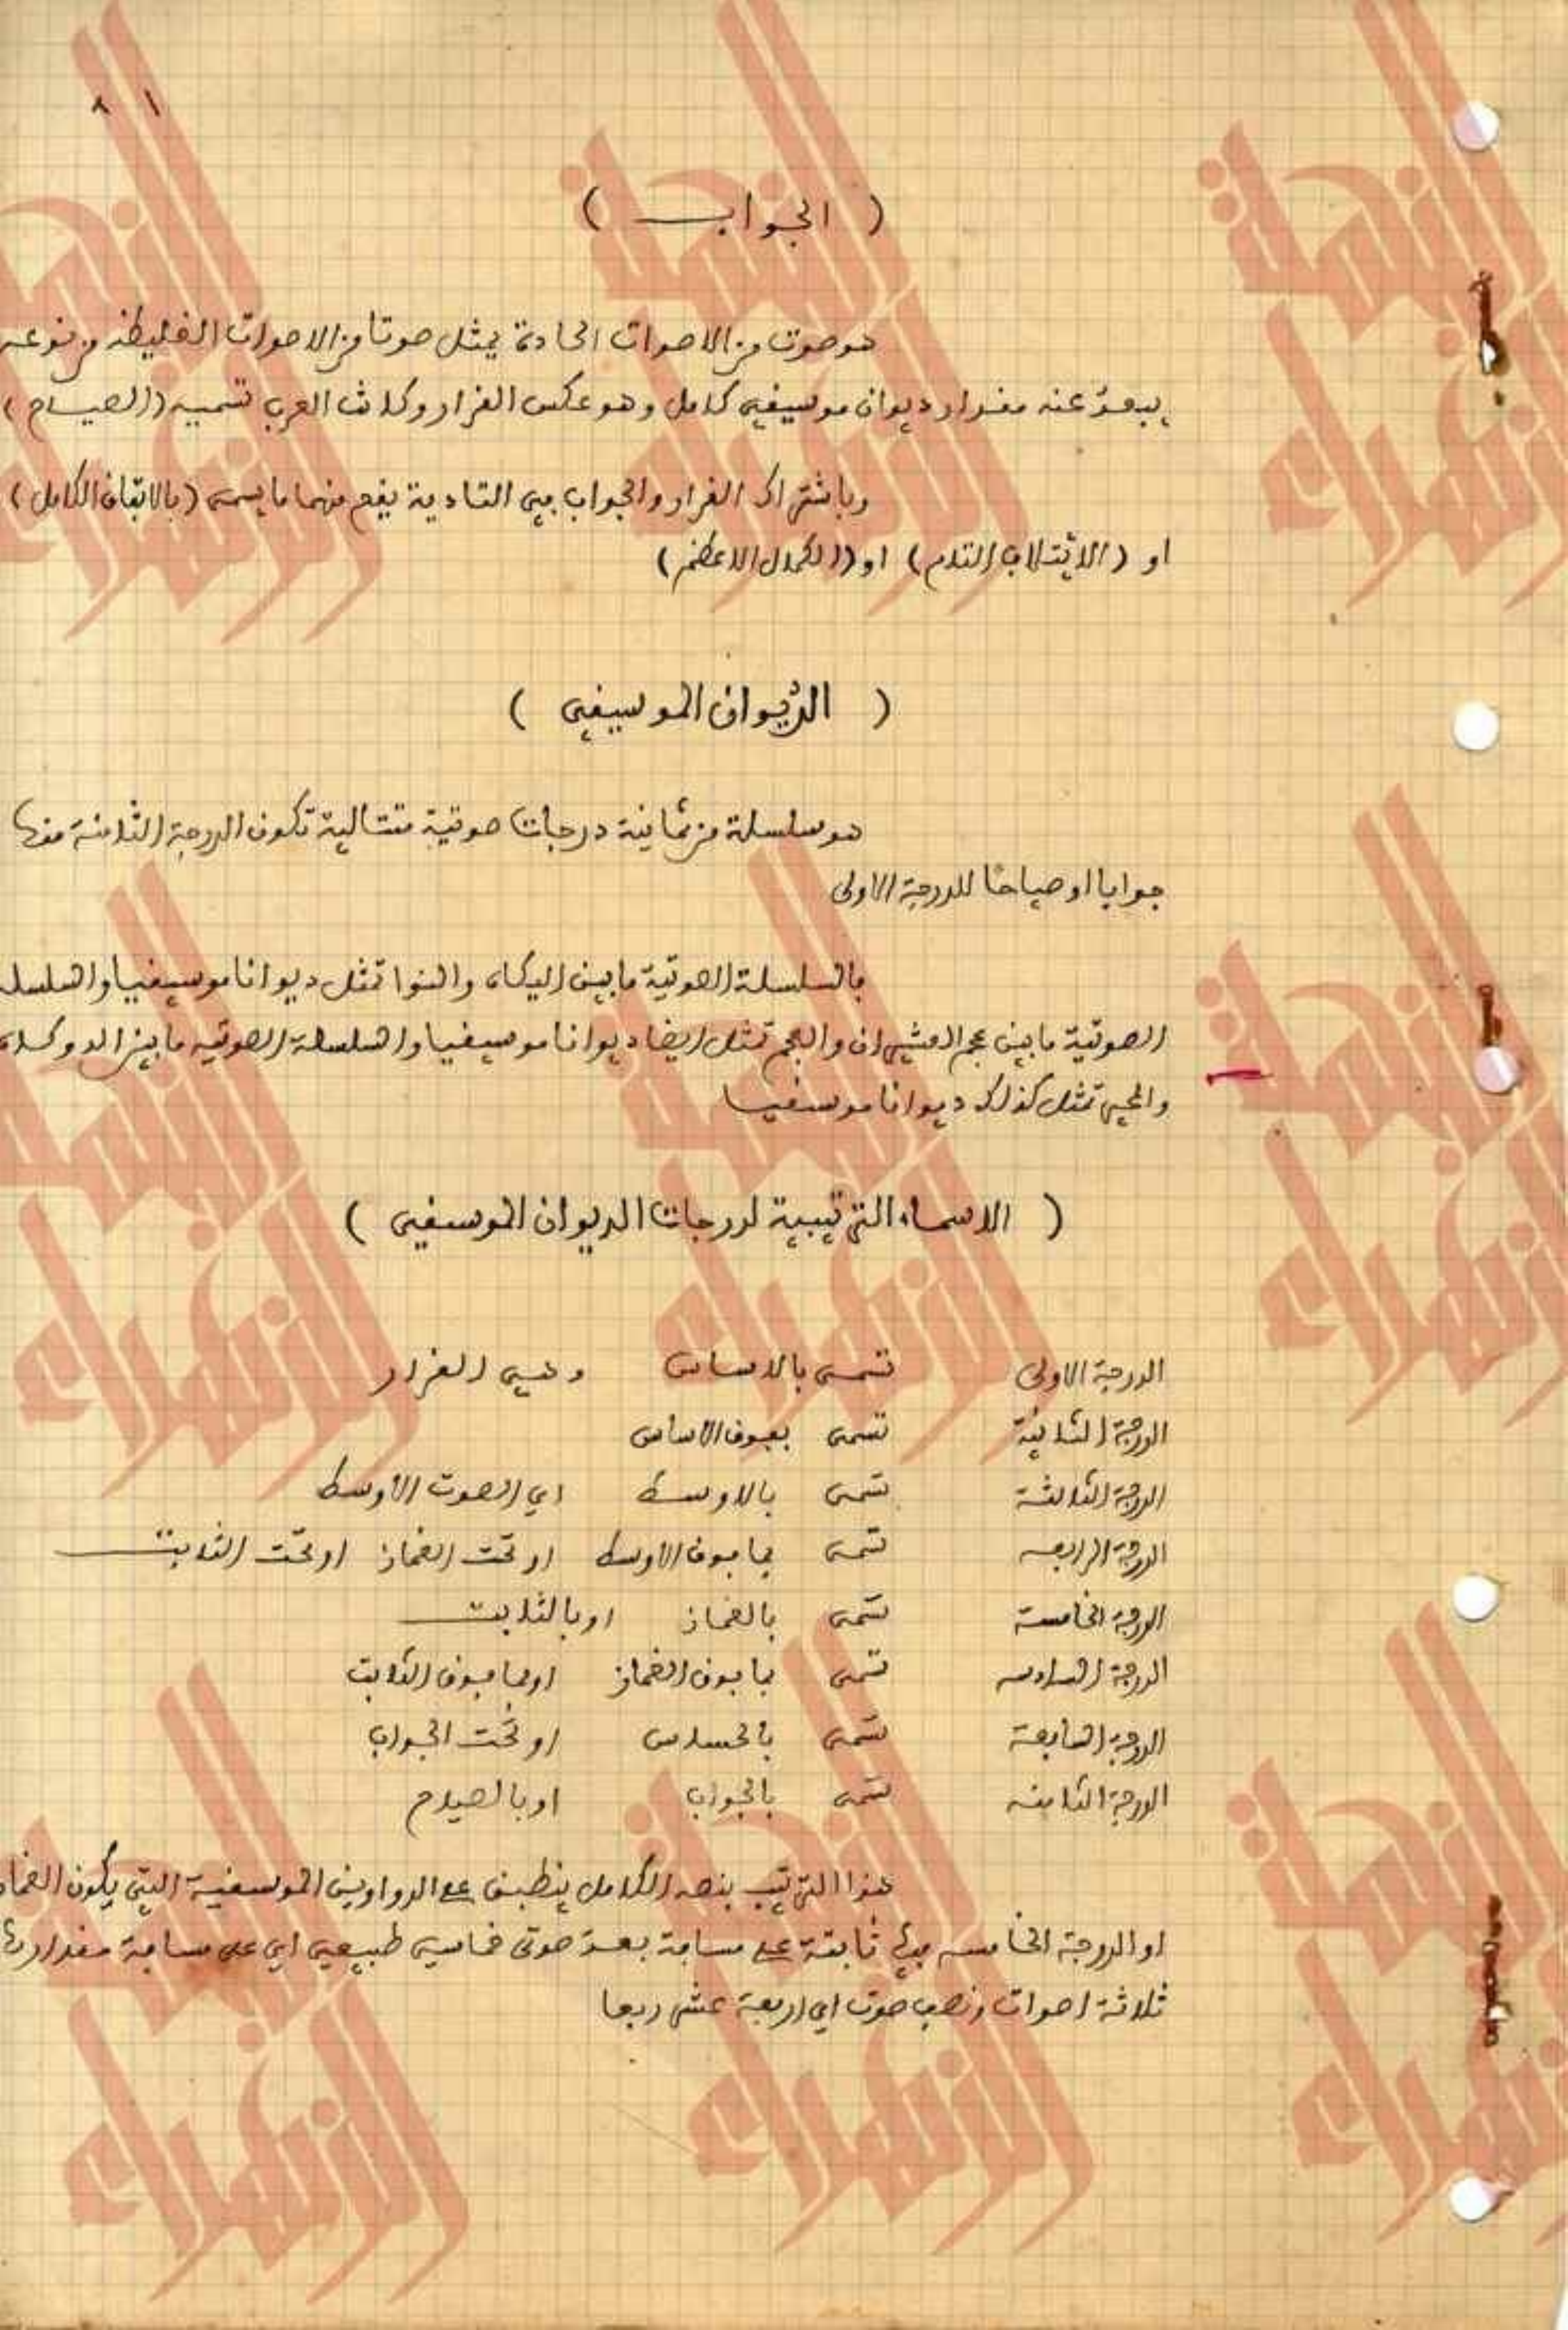 ١ ٨
( الجواب )
هو صوت من الاصوات الحادة يمثل صوتا من الاصوات الغليظة من نوعه
يبعد عنه مقدار ديوان موسيقي كامل وهو عكس القرار وكانت العرب تسميه (الصياح)
وباشتراك القرار والجواب في التأدية يقع منهما ما يسمى (بالاتفاق الكامل)
او (الائتلاف التام) او (الكمال الاعظم)
( الديوان الموسيقي )
هو سلسلة من ثمانية درجات صوتية متتالية تكون الدرجة الثامنة منها
جوابا او صياحا للدرجة الاولى
فالسلسلة الصوتية ما بين اليكاه والنوا تمثل ديوانا موسيقيا والسلسلة
الصوتية ما بين عجم العشيران والعجم تمثل ايضا ديوانا موسيقيا والسلسلة الصوتيه ما بين الدوكاه
والمحير تمثل كذلك ديوانا موسقيا
( الاسماء الترتيبية لدرجات الديوان الموسقي )
الدرجة الاولى تسمى بالاساس وهي القرار
الدرجة الثانية تسمى بفوق الاساس
الدرجة الثالثة تسمى بالاوسط اي الصوت الأوسط
الدرجة الرابعه تسمى بما فوق الاوسط او تحت الغماز او تحت الثابت
الدرجة الخامسة تسمى بالغماز او بالثابت
الدرجة السادسه تسمى بما فوق الغماز او بما فوق الثابت
الدرجة السابعة تسمى بالحساس او تحت الجواب
الدرجة الثامنه تسمى بالجواب او بالصياح
هذا الترتيب بنصه الكامل ينطبق على الدواوين الموسقية التي يكون الغماز
او الدرجة الخامسه فيها ثابتة على مسافة بعد صوتي خماسي طبيعي اي على مسافة مقدارها
ثلاثة اصوات ونصف صوت اي اربعة عشر ربعا
النهضة
الزهراء